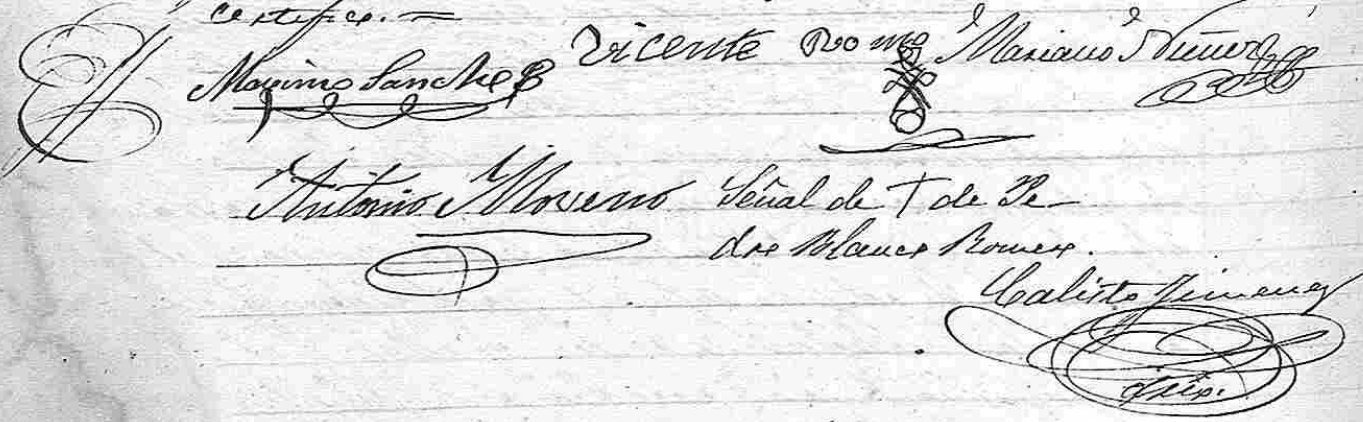 certifico.=
Maximo Sanchez Vicente Romo Mariano Nuñez
Antonio Moreno Señal de † de Pe-
dro Blanco Romero.
Calisto Jimenez
Srio.